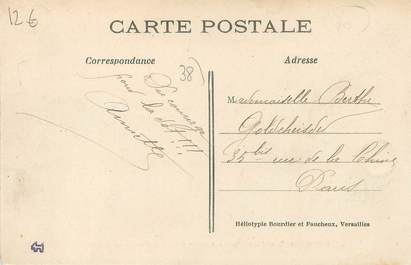 12 €
CARTE POSTALE
Correspondance
Adresse
38)
Du courage
pour
la dot !!!
Annette
Mademoiselle Berthe
Goldscheider
35 bis rue de la Chine
Paris
Héliotypie Bourdier et Faucheux, Versailles